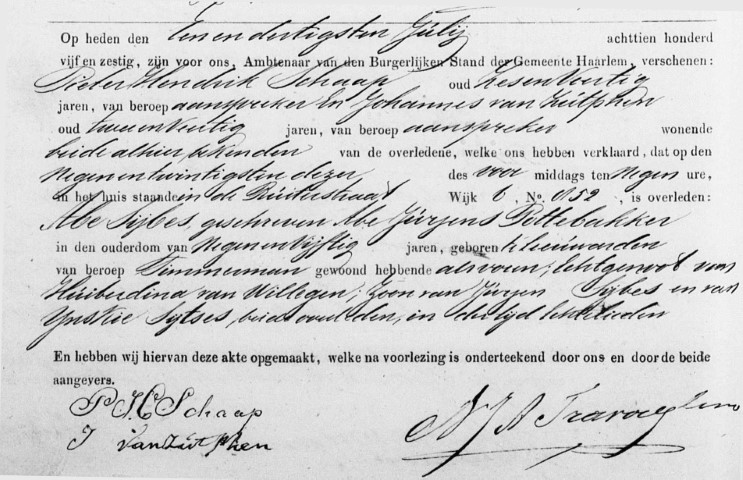 Op heden den Een en dertigsten Julij achttien honderd
vijf en zestig, zijn voor ons, Ambtenaar van den Burgerlijken Stand der Gemeente Haarlem, verschenen:
Pieter Hendrik Schaap oud zesenveertig
jaren, van beroep aanspreker en Johannes van Zutphen
oud tweeenveertig jaren, van beroep aanspreker wonende
beide alhier, bekenden van de overledene, welke ons hebben verklaard, dat op den
Negenentwintigsten dezer des voor middags ten Negen ure,
in het huis staande in de Ruiterstraat Wijk 6, No. 852, is overleden:
Abe Sijbes, geschreven Abe Jurjens Pottebakker
in den ouderdom van Negenenvijftig jaren, geboren te Leeuwarden
van beroep Timmerman gewoond hebbende alsvoren; Echtgenoot van
Huiberdina van Willegen; Zoon van Jurjen Sijbes en van
Ynskie Sytses, beide overleden, in der tijd Echtelieden
En hebben wij hiervan deze akte opgemaakt, welke na voorlezing is onderteekend door ons en door de beide
aangevers.
P H Schaap
J van Zutphen